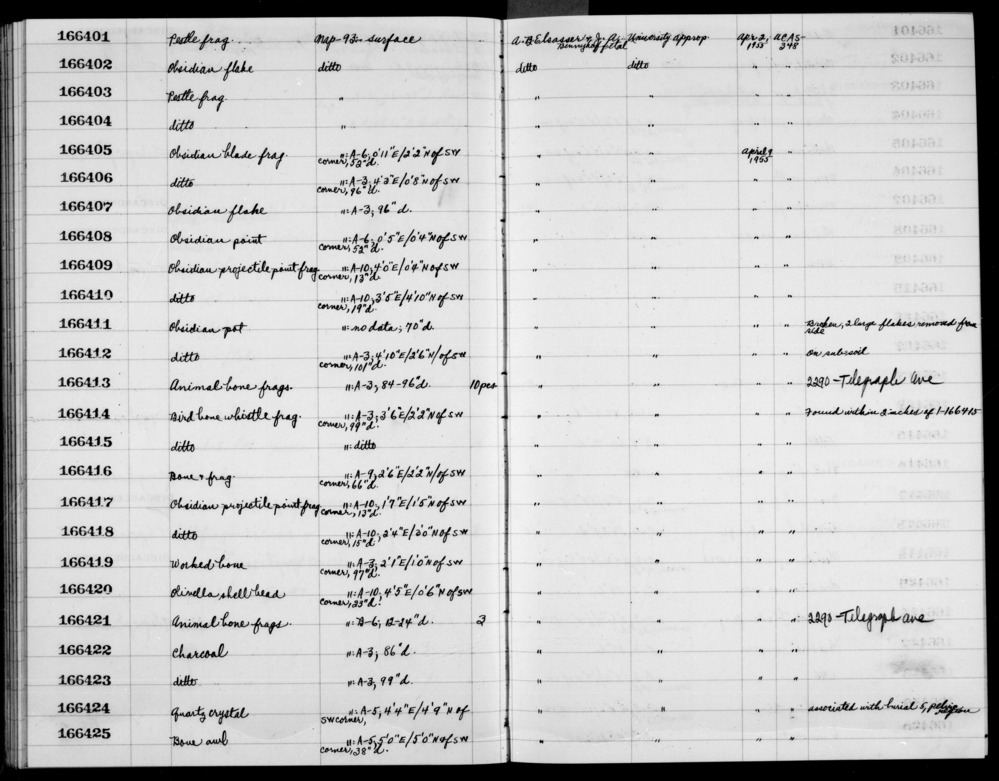 166401 Pestle frag. Nap-93- surface A.B. Elsasser & J. A. Bennyhoff et al University approp. Apr 2, 1955 UCAS-348
166402 Obsidian flake ditto ditto ditto " "
166403 Pestle frag. " " " " "
166404 ditto " " " " "
166405 Obsidian blade frag. ": A-6, 0'11"E/2'2"N of SW corner, 52"d. " " April 9 1955 "
166406 ditto ": A-3, 4'3"E/0'8"N of SW corner, 96"d. " " " "
166407 Obsidian flake ": A-3, 96"d. " " " "
166408 Obsidian point ": A-6, 0'5"E/0'4"N of SW corner, 52"d. " " " "
166409 Obsidian projectile point frag ": A-10, 4'0"E/0'4"N of SW corner, 13"d. " " " "
166410 ditto ": A-10, 3'5"E/4'10"N of SW corner, 19"d. " " " "
166411 Obsidian pot ": no data; 70"d. " " " " Broken, 2 large flakes removed from side
166412 ditto ": A-3, 4'10"E/2'6"N/of SW corner, 101"d. " " " " on subsoil
166413 Animal bone frags. ": A-3, 84-96"d. 10 pcs " " " " 2290-Telegraph Ave
166414 Bird bone whistle frag. ": A-3, 3'6"E/2'2"N of SW corner, 99"d. " " " " Found within 2 inches of 1-166415
166415 ditto ": ditto " " " "
166416 Bone & frag. ": A-9, 2'6"E/2'2"N/of SW corner, 66"d. " " " "
166417 Obsidian projectile point frag ": A-10, 1'7"E/1'5"N of SW corner, 13"d. " " " "
166418 ditto ": A-10, 2'4"E/2'0"N of SW corner, 15"d. " " " "
166419 Worked bone ": A-3, 2'1"E/1'0"N of SW corner, 97"d. " " " "
166420 Olivella shell bead ": A-10, 4'5"E/0'6"N of SW corner, 33"d. " " " "
166421 Animal bone frags. ": B-6, 12-24"d. 3 " " " " 2290-Telegraph Ave
166422 Charcoal ": A-3, 86"d. " " " "
166423 ditto ": A-3, 99"d. " " " "
166424 Quartz crystal ": A-5, 4'4"E/4'9"N of SW corner, " " " " associated with burial 5, pelvic region
166425 Bone awl ": A-5, 5'0"E/5'0"N of SW corner, 38"d. " " " "